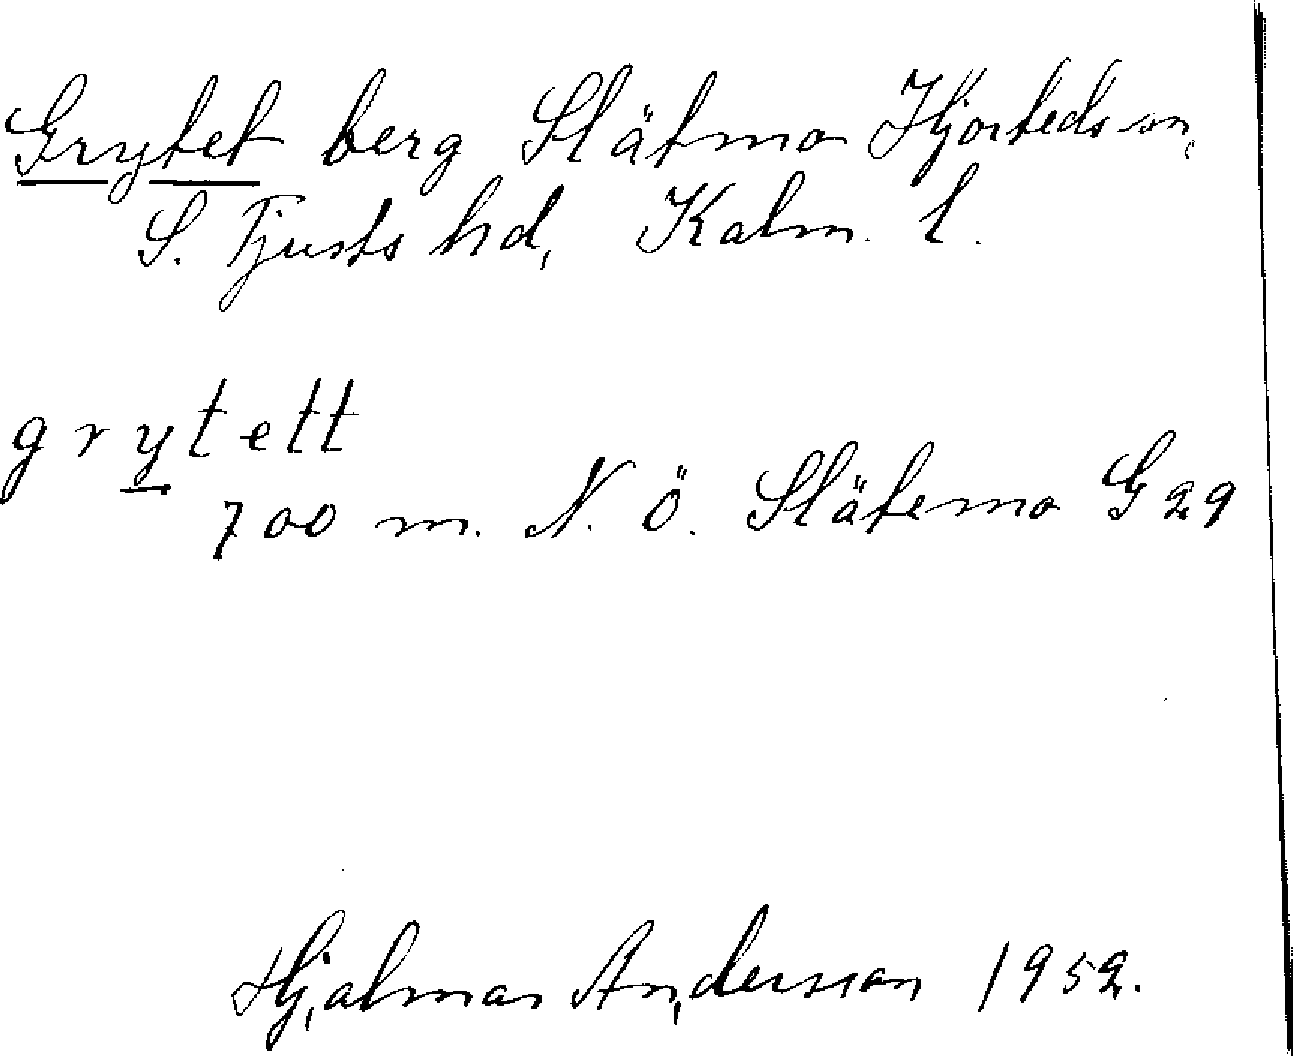 Grytet berg Slätmo Hjorteds sn,
S. Tjusts hd, Kalm. l.
grytett
700 m. N. Ö. Slätemo G 29
Hjalmar Andersson 1952.